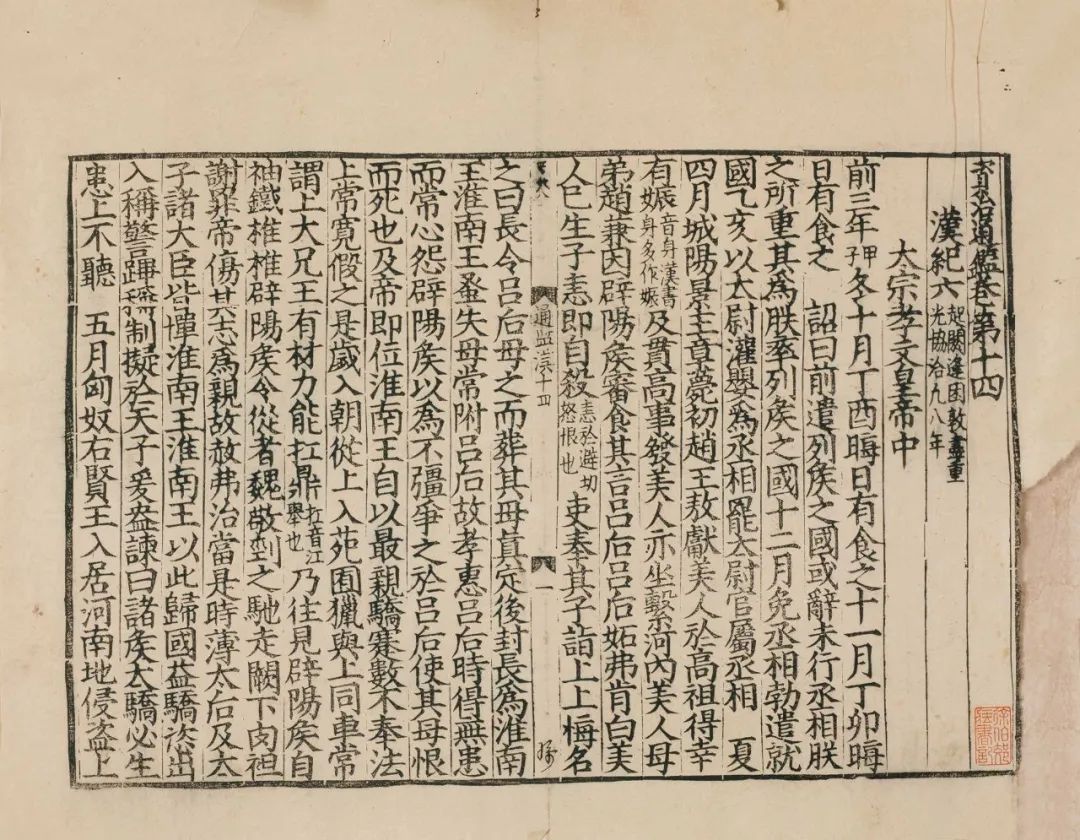 資治通鑑卷第十四
漢紀六 起閼逢困敦盡重光協洽凡八年
太宗孝文皇帝中
前三年甲子冬十月丁酉晦日有食之十一月丁卯晦
日有食之 詔曰前遣列矦之國或辭未行丞相朕
之所重其爲朕率列矦之國十二月免丞相勃遣就
國乙亥以太尉灌嬰爲丞相罷太尉官屬丞相 夏
四月城陽景王章薨初趙王敖獻美人於高祖得幸
有娠音身漢書身多作娠及貫高事發美人亦坐繫河內美人母
弟趙兼因辟陽矦審食其言呂后呂后妬弗肯白美
人已生子恚即自殺恚於避切怒恨也 吏奉其子詣上上悔名
通監漢十四
一
之曰長令呂后母之而葬其母真定後封長爲淮南
王淮南王蚤失母常附呂后故孝惠呂后時得無患
而常心怨辟陽矦以爲不彊爭之於呂后使其母恨
而死也及帝即位淮南王自以最親驕蹇數不奉法
上常寬假之是歲入朝從上入苑囿獵與上同車常
謂上大兄王有材力能扛鼎扛音江舉也乃往見辟陽矦自
袖鐵椎椎辟陽矦令從者魏敬剄之馳走闕下肉袒
謝罪帝傷其志爲親故赦弗治當是時薄太后及太
子諸大臣皆憚淮南王淮南王以此歸國益驕恣出
入稱警蹕稱制擬於天子爰盎諫曰諸矦太驕必生
患上不聽 五月匈奴右賢王入居河南地侵盜上